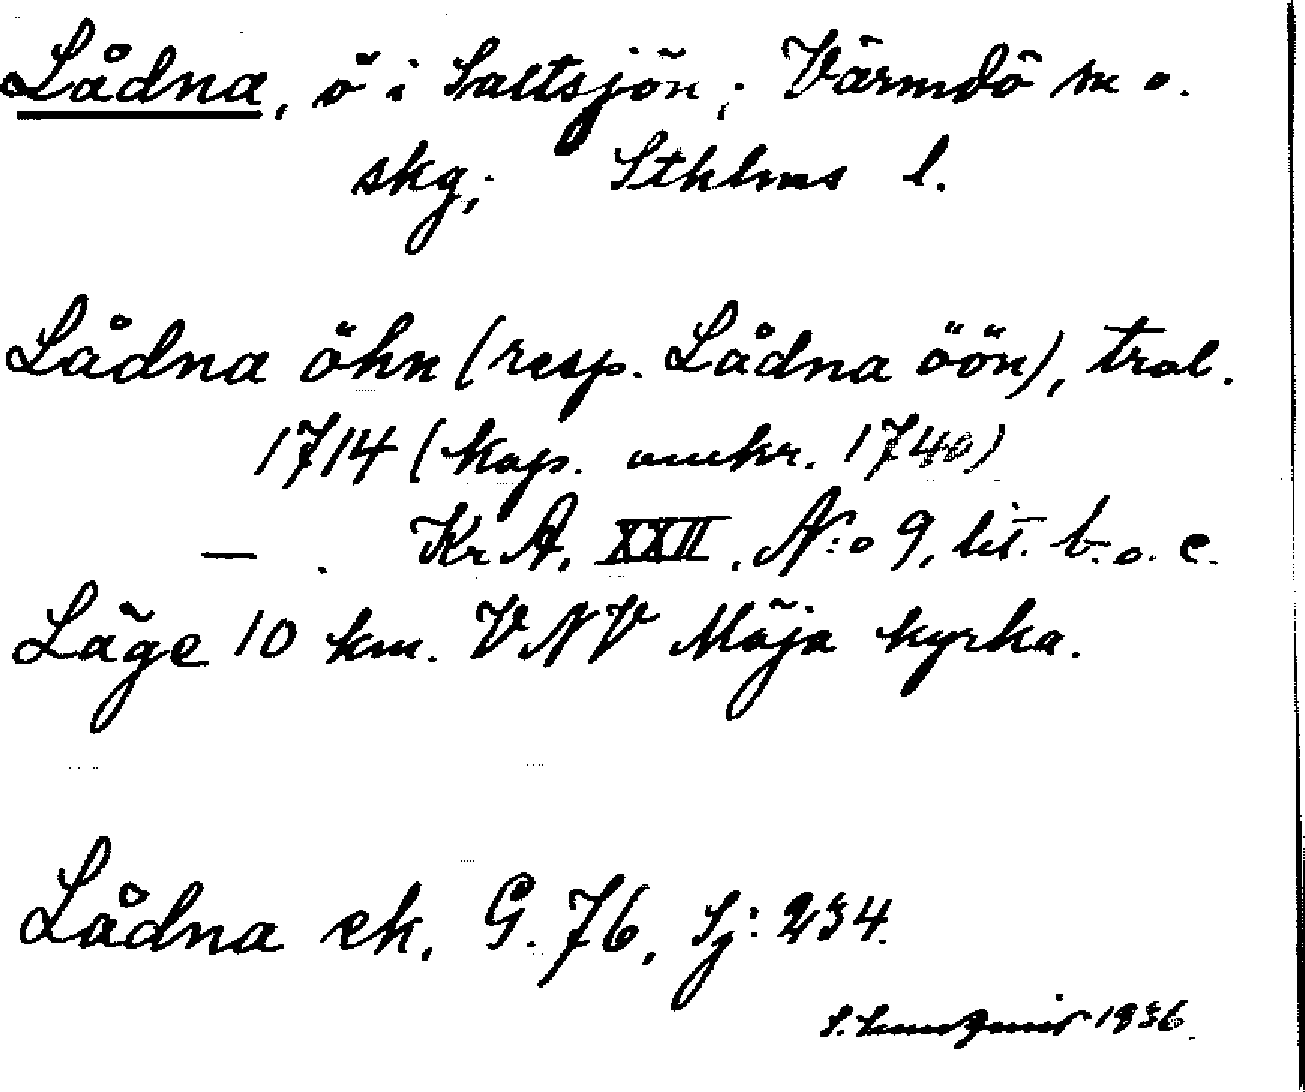 Lådna, ö i Saltsjön; Värmdö s o.
skg; Sthlms l.
Lådna öhn (resp. Lådna öön), trol.
1714 (kop. omkr. 1740)
— . KrA. XXII. N:o 9, lit. b. o. c.
Läge 10 km. VNV Möja kyrka.
Lådna ek. G. 76, Sj: 234.
1936